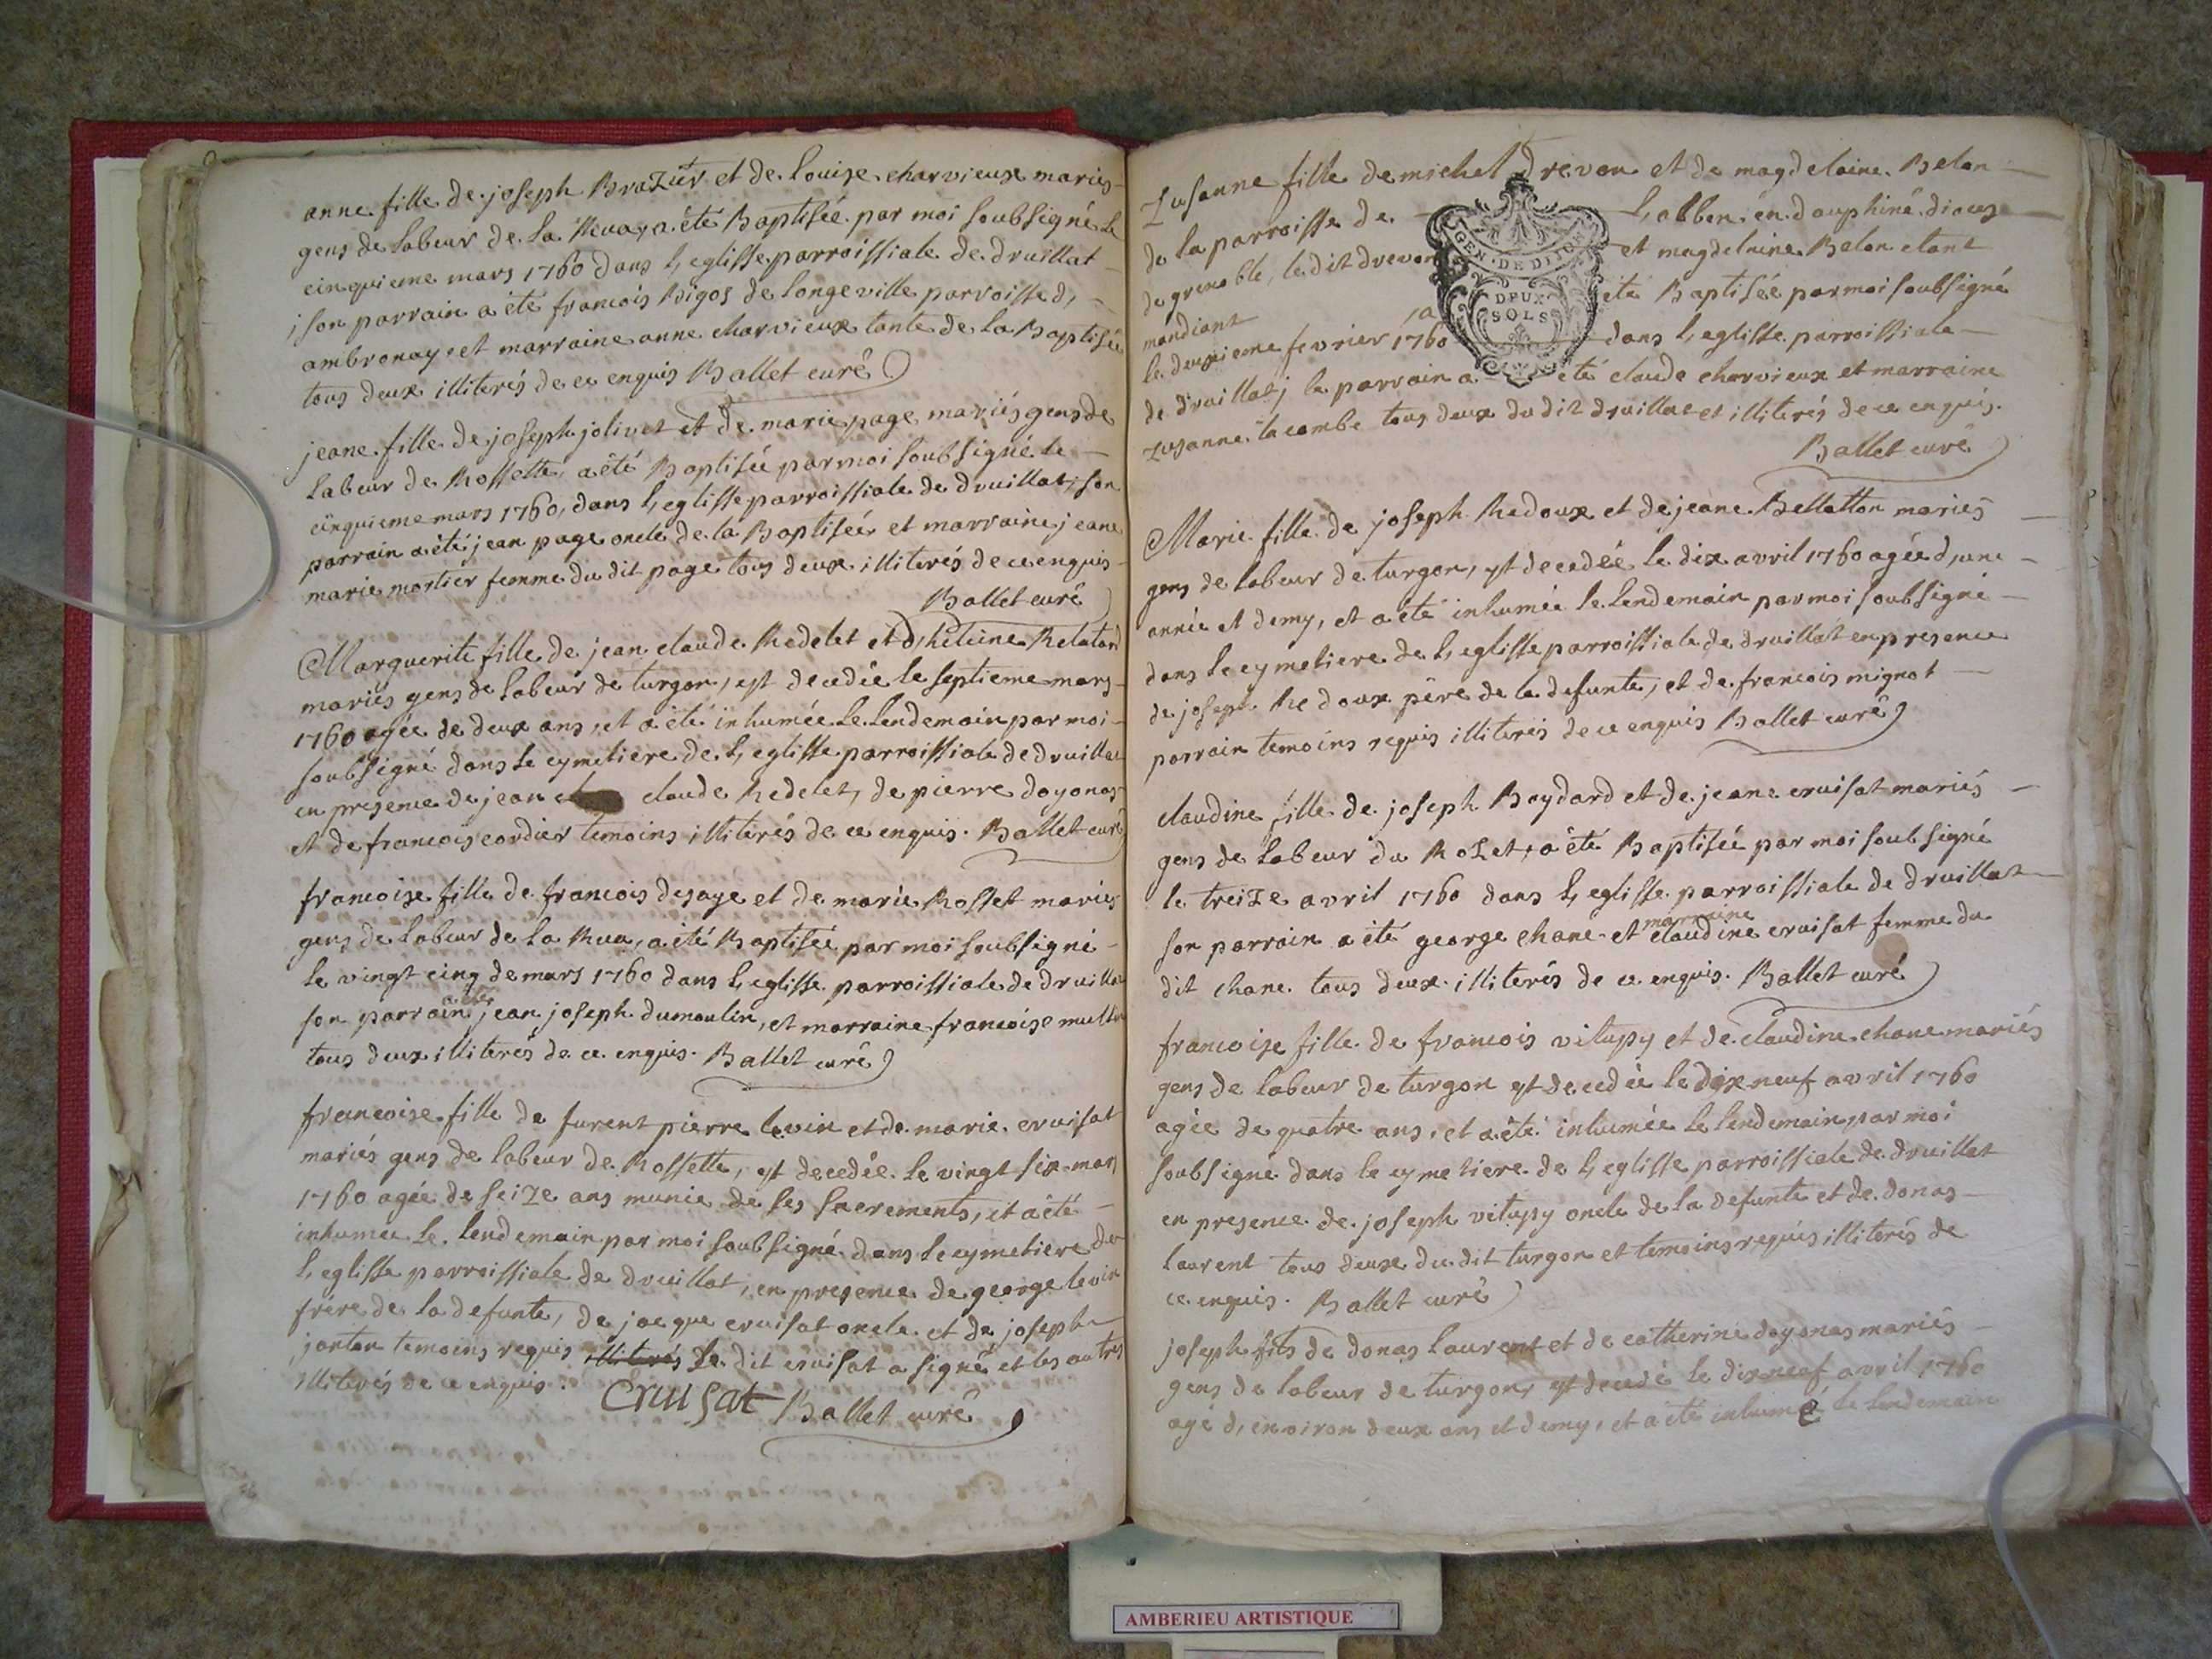 anne fille de joseph Brazier et de louise charvieux mariés
gens de labeur de la Ruaz, a été Baptisée par moi soubsigné le
cinquieme mars 1760 dans l,eglisse parroissiale de druillat
; son parrain a été francois Bigos de longeville parroisse d,
ambronay, et marraine anne charvieux tante de la Baptisée
tous deux illiterés de ce enquis Ballet curé
jeane fille de joseph jolivet et de marie page mariés gens de
labeur de Rossette, a été Baptisée par moi soubsigné le
cinquieme mars 1760, dans l,eglisse parroissiale de druillat, son
parrain a été jean page oncle de la Baptisée et marraine jeane
marie mortier femme du dit page tous deux illiterés de ce enquis
Ballet curé
Marguerite fille de jean claude Redelet et d,heleine Relaton
mariés gens de labeur de turgon, est decedée le septieme mars
1760 agée de deux ans, et a été inhumée le lendemain par moi
soubsigné dans le cymetiere de l,eglisse parroissiale de druillat
en presence de jean claude Redelet, de pierre doyonas
et de francois cordier temoins illiterés de ce enquis. Ballet curé
francoise fille de francois desaye et de marie Rosset mariés
gens de labeur de la Rua, a été Baptisée par moi soubsigné
le vingt cinq de mars 1760 dans l,eglisse parroissiale de druillat
son parrain a été jean joseph dumoulin, et marraine francoise
tous deux illiterés de ce enquis. Ballet curé
francoise fille de furent pierre levin et de marie cruisat
mariés gens de labeur de Rossette, est decedée le vingt six mars
1760 agée de seize ans munie de ses sacrements, et a été
inhumée le lendemain par moi soubsigné dans le cymetiere de
l,eglisse parroissiale de druillat, en presence de george levin
frere de la defunte, de jacque cruisat oncle et de joseph
jantan temoins requis illiterés le dit cruisat a signé et les autres
illiterés de ce enquis. Cruisat Ballet curé
Zusanne fille de michel Drevon et de magdelaine Belon
de la parroisse de L,alben en dauphiné diocese
de grenoble, le dit drevon et magdelaine Belon etant
GEN. DE DIJON
mandiant, a été Baptisée par moi soubsigné
DEUX SOLS
le deuxieme fevrier 1760 dans l,eglisse parroissiale
de druillat; le parrain a été claude charvieux et marraine
zusanne lacombe tous deux du dit druillat et illiterés de ce enquis.
Ballet curé
Marie fille de joseph Redoux et de jeane Bellatton mariés
gens de labeur de turgon, est decedée le dix avril 1760 agée d,une
année et demy, et a été inhumée le lendemain par moi soubsigné
dans le cymetiere de l,eglisse parroissiale de druillat en presence
de joseph Redoux pére de la defunte, et de francois mignot
parrain temoins requis illiterés de ce enquis Ballet curé
claudine fille de joseph Boydard et de jeane cruisat mariés
gens de labeur du Rozet, a été Baptisée par moi soubsigné
le treize avril 1760 dans l,eglisse parroissiale de druillat
son parrain a été george chane et marraine claudine cruisat femme du
dit chane tous deux illiterés de ce enquis. Ballet curé
francoise fille de francois vitupy et de claudine chane mariés
gens de labeur de turgon est decedée le dix neuf avril 1760
agée de quatre ans, et a été inhumée le lendemain par moi
soubsigné dans le cymetiere de l,eglisse parroissiale de druillat
en presence de joseph vitupy oncle de la defunte et de donas
laurent tous deux du dit turgon et temoins requis illiterés de
ce enquis. Ballet curé
joseph fils de donas laurent et de catherine doyonas mariés
gens de labeur de turgon, est decedé le dix neuf avril 1760
agé d,environ deux ans et demy, et a été inhumé le lendemain
AMBERIEU ARTISTIQUE